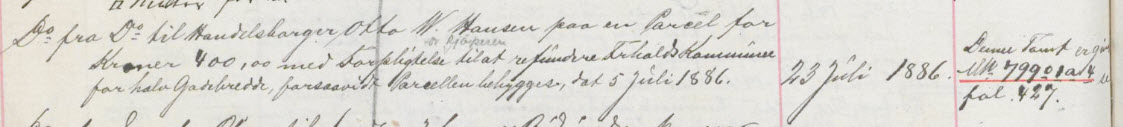 Do fra Do til Handelsborger Otto W. Hansen paa en Parcel for
Kroner 400,00 med Forpligtelse til at refundere Trholds Kommune
for halv Gadebredde, forsaavidt Parcellen bebygges, dat 5 Juli 1886.
23 Juli 1886.
Denne Tomt er
MNr. 799 01a
fol. 427.